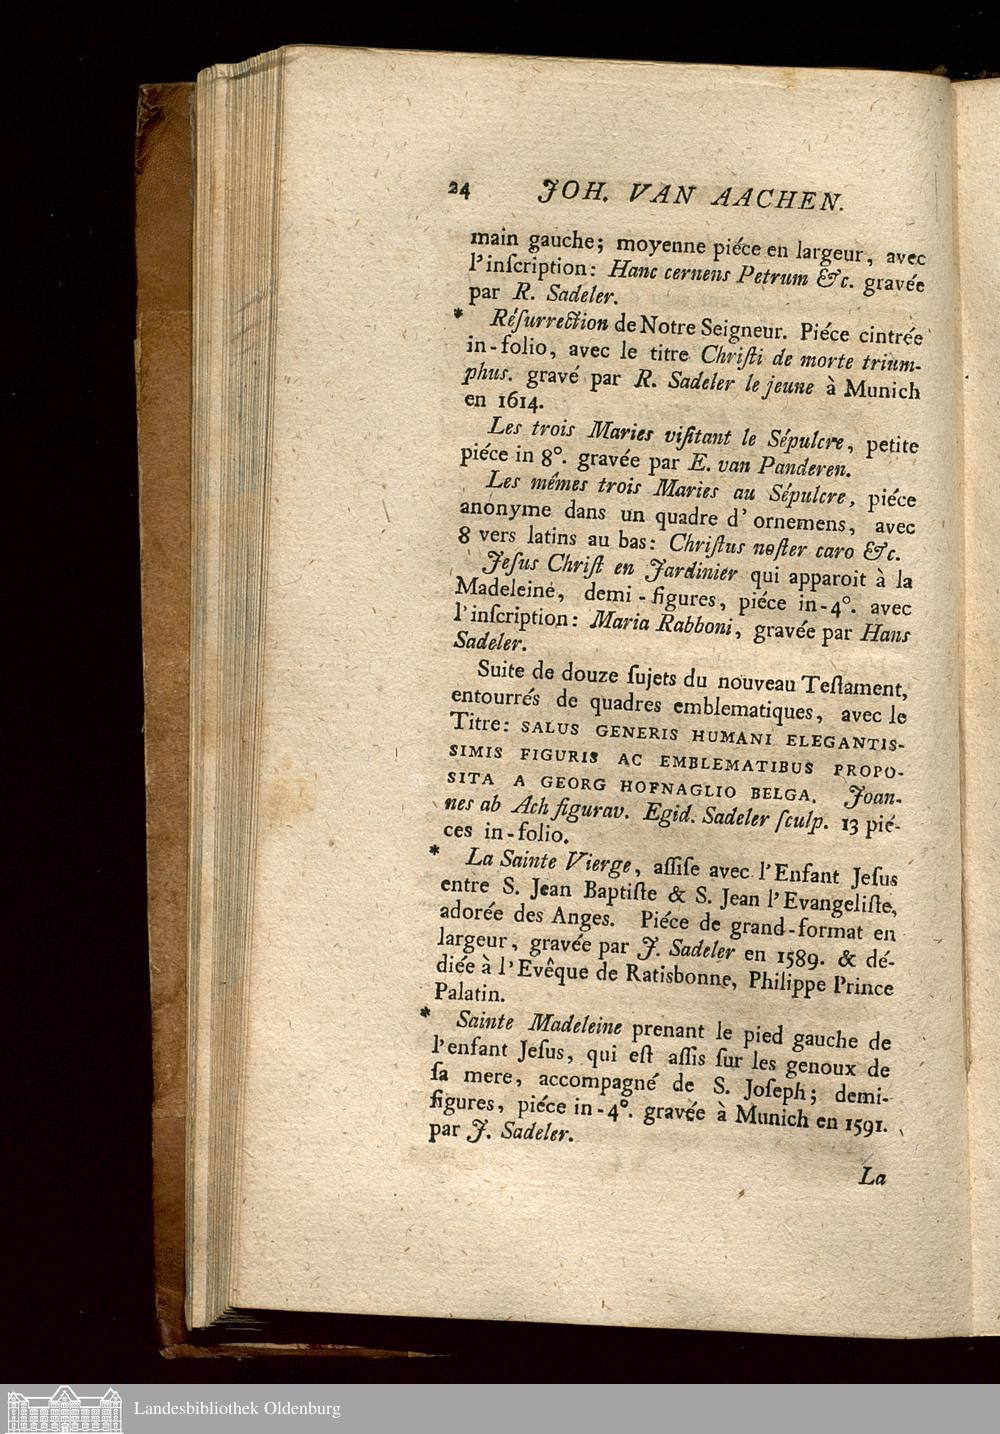 24 JOH. VAN AACHEN.
main gauche; moyenne piéce en largeur, avec
l'inſcription: Hanc cernens Petrum &c. gravée
par R. Sadeler.
* Réſurrection de Notre Seigneur. Piéce cintrée
in-folio, avec le titre Chriſti de morte trium-
phus. gravé par R. Sadeler le jeune à Munich
en 1614.
Les trois Maries viſitant le Sépulcre, petite
piéce in 8°. gravée par E. van Panderen.
Les mêmes trois Maries au Sépulcre, piéce
anonyme dans un quadre d' ornemens, avec
8 vers latins au bas: Chriſtus noſter caro &c.
Jeſus Chriſt en Jardinier qui apparoit à la
Madeleine, demi-figures, piéce in-4°. avec
l'inſcription: Maria Rabboni, gravée par Hans
Sadeler.
Suite de douze ſujets du nouveau Teſtament,
entourrés de quadres emblematiques, avec le
Titre: SALUS GENERIS HUMANI ELEGANTIS-
SIMIS FIGURIS AC EMBLEMATIBUS PROPO-
SITA A GEORG HOFNAGLIO BELGA. Joan-
nes ab Ach figurav. Egid. Sadeler ſculp. 13 pié-
ces in-folio.
* La Sainte Vierge, aſſiſe avec l'Enfant Jeſus
entre S. Jean Baptiſte & S. Jean l'Evangeliſte,
adorée des Anges. Piéce de grand-format en
largeur, gravée par J. Sadeler en 1589. & dé-
diée à l'Evêque de Ratisbonne, Philippe Prince
Palatin.
* Sainte Madeleine prenant le pied gauche de
l'enfant Jeſus, qui eſt aſſis ſur les genoux de
ſa mere, accompagné de S. Joſeph; demi-
figures, piéce in-4°. gravée à Munich en 1591.
par J. Sadeler.
La
Landesbibliothek Oldenburg